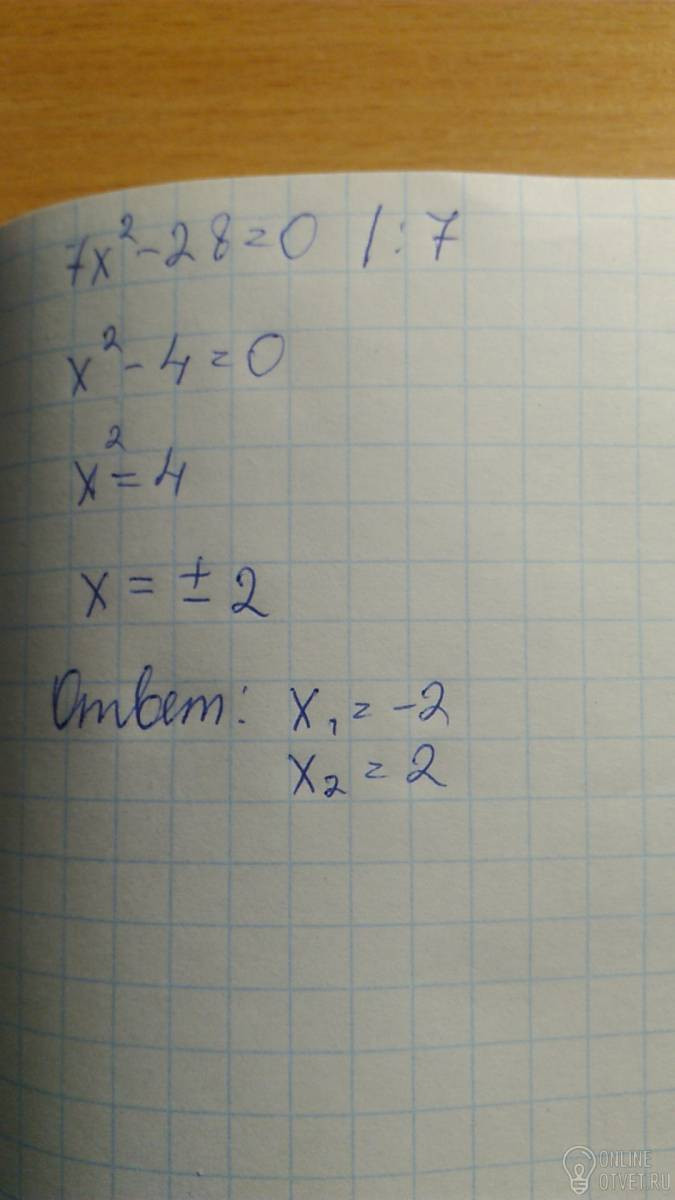 7x² - 28 = 0 | : 7
x² - 4 = 0
x² = 4
x = ± 2
Ответ: x₁ = -2
x₂ = 2
ONLINE
OTVET.RU